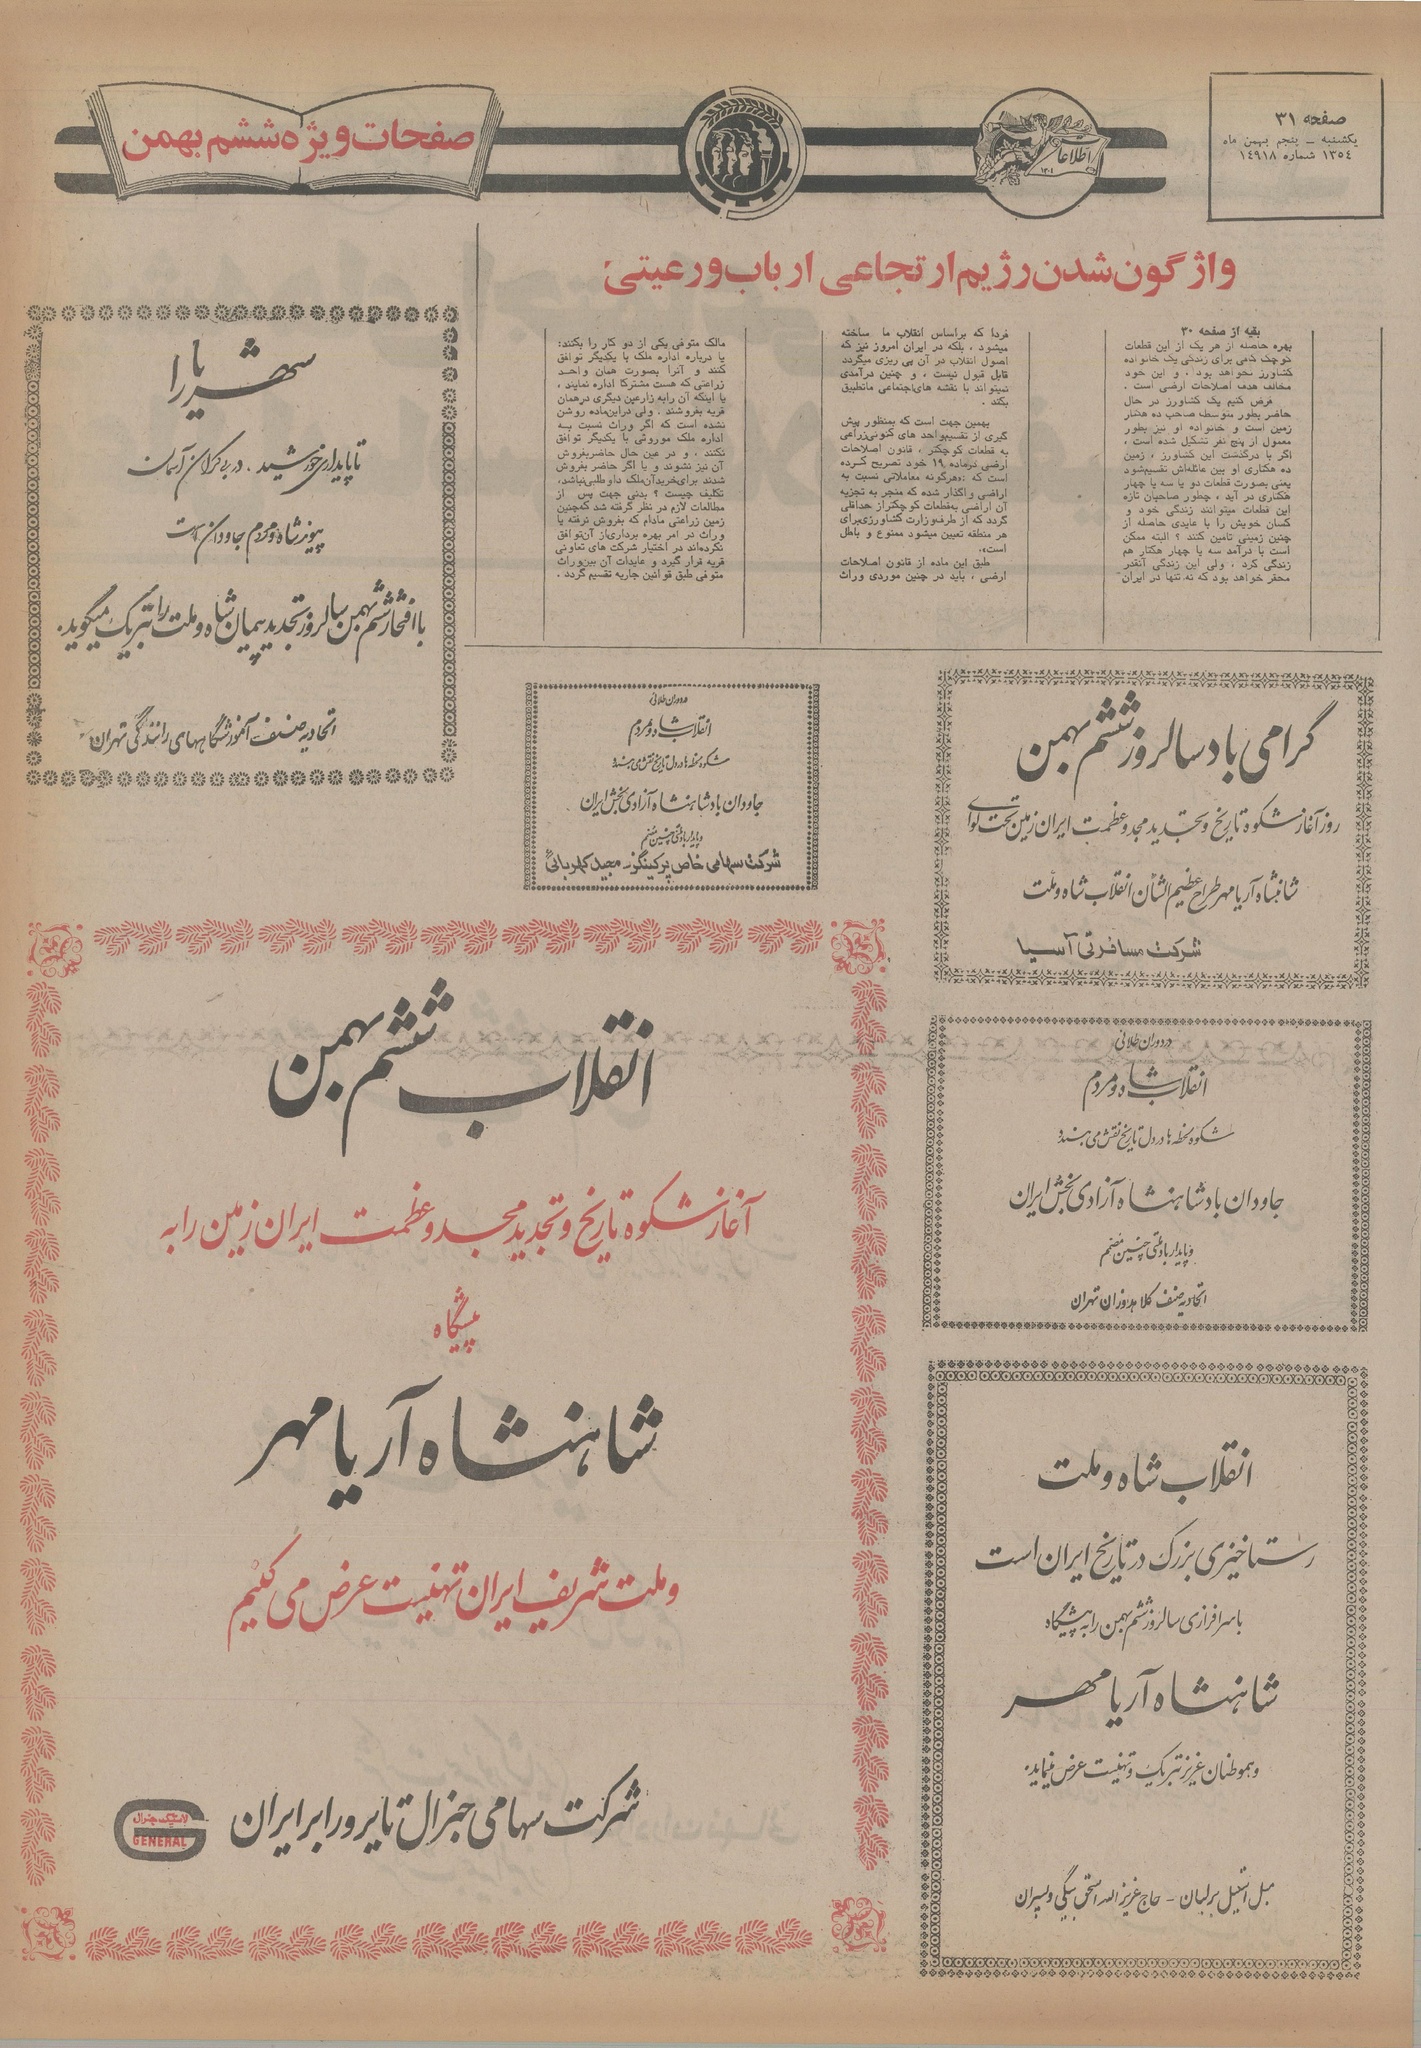 صفحه ۳۱
یکشنبه ــ پنجم بهمن ماه
۱۳۵۴ شماره ۱۴۹۱۸
اطلاعات
صفحات ویژه ششم بهمن
واژگون شدن رژیم ارتجاعی ارباب و رعیتی
بقیه از صفحه ۳۰
بهره حاصله از هر یک از این قطعات
کوچک کافی برای زندگی یک خانواده
کشاورز نخواهد بود ، و این خود
مخالف هدف اصلاحات ارضی است .
فرض کنیم یک کشاورز در حال
حاضر بطور متوسط صاحب ده هکتار
زمین است و خانواده او نیز بطور
معمول از پنج نفر تشکیل شده است ،
اگر با درگذشت این کشاورز ، زمین
ده هکتاری او بین عائله‌اش تقسیم‌شود
یعنی بصورت قطعات دو یا سه یا چهار
هکتاری در آید ، چطور صاحبان تازه
این قطعات میتوانند زندگی خود و
کسان خویش را با عایدی حاصله از
چنین زمینی تامین کنند ؟ البته ممکن
است با درآمد سه یا چهار هکتار هم
زندگی کرد ، ولی این زندگی آنقدر
محقر خواهد بود که نه تنها در ایران
فردا که براساس انقلاب ما ساخته
میشود ، بلکه در ایران امروز نیز که
اصول انقلاب در آن پی ریزی میگردد
قابل قبول نیست ، و چنین درآمدی
نمیتواند با نقشه های‌اجتماعی ماتطبیق
بکند .
بهمین جهت است که بمنظور پیش
گیری از تقسیم‌واحد های کنونی‌زراعی
به قطعات کوچکتر ، قانون اصلاحات
ارضی درماده ۱۹ خود تصریح کرده
است که :«هرگونه معاملاتی نسبت به
اراضی واگذار شده که منجر به تجزیه
آن اراضی به‌قطعات کوچکتر از حداقلی
گردد که از طرف‌وزارت کشاورزی‌برای
هر منطقه تعیین میشود ممنوع و باطل
است».
طبق این ماده از قانون اصلاحات
ارضی ، باید در چنین موردی وراث
مالک متوفی یکی از دو کار را بکنند:
یا درباره اداره ملک با یکدیگر توافق
کنند و آنرا بصورت همان واحد
زراعتی که هست مشترکا اداره نمایند ،
یا اینکه آن رابه زارعین دیگری درهمان
قریه بفروشند . ولی دراین‌ماده روشن
نشده است که اگر وراث نسبت به
اداره ملک موروثی با یکدیگر توافق
نکنند ، و در عین حال حاضربفروش
آن نیز نشوند و یا اگر حاضر بفروش
شدند برای‌خریدآن‌ملک داوطلبی‌نباشد،
تکلیف چیست ؟ بدنی جهت پس از
مطالعات لازم در نظر گرفته شد که‌چنین
زمین زراعتی مادام که بفروش نرفته یا
وراث در امر بهره برداری‌از آن‌توافق
نکرده‌اند در اختیار شرکت های تعاونی
قریه قرار گیرد و عایدات آن بین‌وراث
متوفی طبق قوانین جاریه تقسیم گردد .
شهریارا
تا پایداری خورشید ، در بی کران آسمان
پیوند شاه و مردم جاودان است
با افتخار ششم بهمن سالروز تجدید پیمان شاه و ملت را تبریک میگوید.
اتحادیه صنف آموزشگاههای رانندگی تهران
در دوران طلائی
انقلاب شاه و مردم
شکوه لحظه ها در دل تاریخ نقش می بندد
جاودان باد شاهنشاه آزادی بخش ایران
و پایدار باد ملتی چنین مصمم
شرکت سهامی خاص پرکینگز ــ مجید کهربائی
گرامی باد سالروز ششم بهمن
روز آغاز شکوه تاریخ و تجدید مجد و عظمت ایران زمین تحت لوای
شاهنشاه آریامهر طراح عظیم الشأن انقلاب شاه و ملت
شرکت مسافرتی آسیا
در دوران طلائی
انقلاب شاه و مردم
شکوه لحظه ها در دل تاریخ نقش می بندد
جاودان باد شاهنشاه آزادی بخش ایران
و پایدار باد ملتی چنین مصمم
اتحادیه صنف کلاهدوزان تهران
انقلاب ششم بهمن
آغاز شکوه تاریخ و تجدید مجد و عظمت ایران زمین را به
پیشگاه
شاهنشاه آریامهر
و ملت شریف ایران تهنیت عرض می کنیم
شرکت سهامی جنرال تایر و رابر ایران
لاستیک جنرال
GENERAL
انقلاب شاه و ملت
رستاخیزی بزرگ در تاریخ ایران است
با سرافرازی سالروز ششم بهمن را به پیشگاه
شاهنشاه آریامهر
و هموطنان عزیز تبریک و تهنیت عرض مینماید.
مبل استیل برلیان - حاج عزیز الله اسحق بیگی و پسران